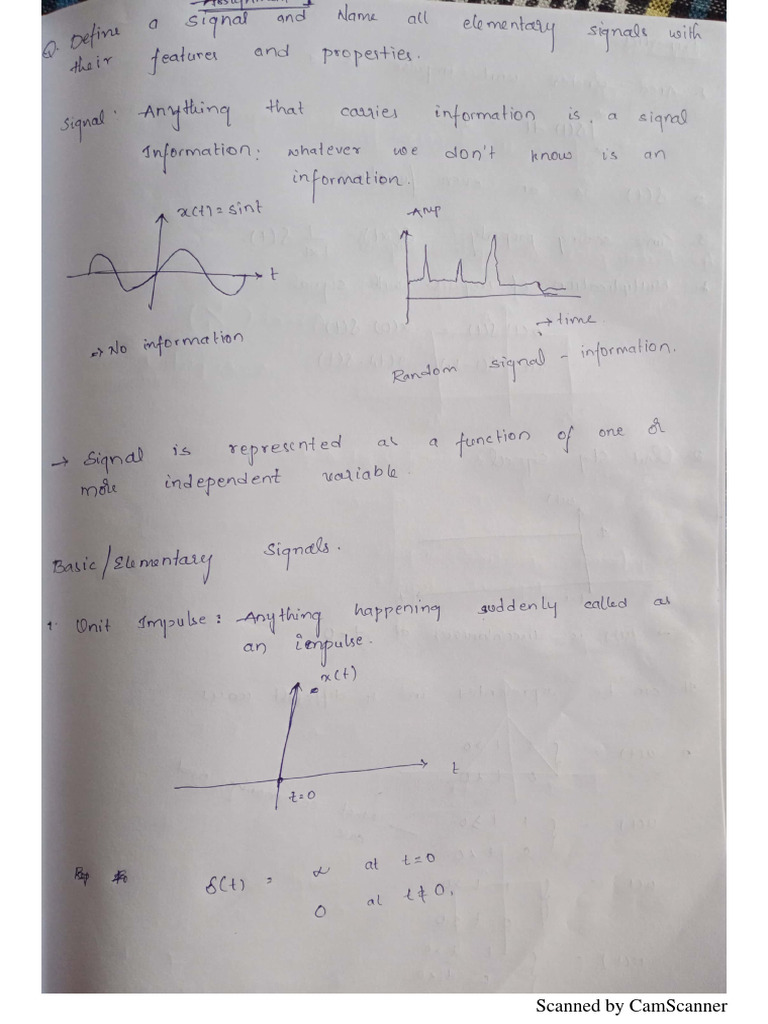 Assignment 1
Q. Define a signal and Name all elementary signals with
their features and properties.
Signal: Anything that carries information is a signal
Information: whatever we don't know is an
information.
x(t) = sint
t
→ No information
Amp
→ time
Random signal - information.
→ Signal is represented as a function of one or
more independent variable.
Basic/Elementary Signals.
1. Unit Impulse: Anything happening suddenly called as
an impulse.
x(t)
t
t=0
Rep
δ(t) = ∞ at t=0
0 at t≠0.
Scanned by CamScanner